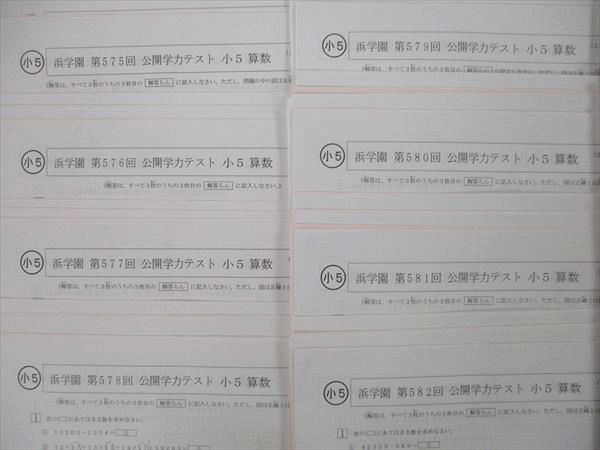 小5 浜学園 第575回 公開学力テスト 小5 算数
《解答は、すべて3枚のうちの3枚目の 解答らん に記入しなさい。ただし、問題の中の図は正確
小5 浜学園 第576回 公開学力テスト 小5 算数
《解答は、すべて3枚のうちの3枚目の 解答らん に記入しなさい。》
小5 浜学園 第577回 公開学力テスト 小5 算数
《解答は、すべて3枚のうちの3枚目の 解答らん に記入しなさい。ただし、図は正確とは
小5 浜学園 第578回 公開学力テスト 小5 算数
《解答は、すべて3枚のうちの3枚目の 解答らん に記入しなさい。ただし、図は正確とは
1 次の□にあてはまる数を求めなさい。
① 10203-1234=
小5 浜学園 第579回 公開学力テスト 小5 算数
小5 浜学園 第580回 公開学力テスト 小5 算数
《解答は、すべて3枚のうちの3枚目の 解答らん に記入しなさい。ただし、図は正確とは
小5 浜学園 第581回 公開学力テスト 小5 算数
《解答は、すべて3枚のうちの3枚目の 解答らん に記入しなさい。ただし、図は正確とは
小5 浜学園 第582回 公開学力テスト 小5 算数
《解答は、すべて3枚のうちの3枚目の 解答らん に記入しなさい。ただし、図は正確とは
1 次の□にあてはまる数を求めなさい。